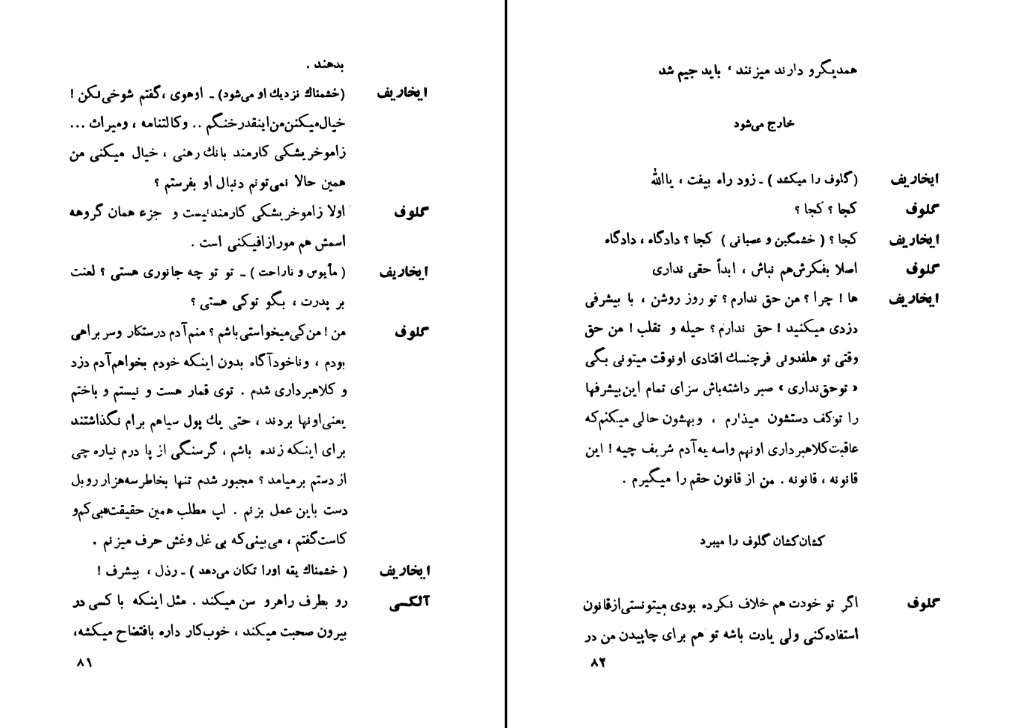 بدهند .
ایخاریف (خشمناك نزدیك او می‌شود) ـ اوهوی ، گفتم شوخی نكن !
خیال میکنن من اینقدر خنگم .. وکالتنامه ، ومیراث ...
زاموخریشکی کارمند بانك رهنی ، خیال میکنی من
همین حالا نمی‌تونم دنبال او بفرستم ؟
گلوف اولا زاموخریشکی کارمند نیست و جزء همان گروهه
اسمش هم مورزافیکنی است .
ایخاریف ( مأیوس و ناراحت ) ـ تو تو چه جانوری هستی ؟ لعنت
بر پدرت ، بگو توکی هستی ؟
گلوف من ! من کی میخواستی باشم ؟ منم آدم درستکار وسر براهی
بودم ، وناخودآگاه بدون اینکه خودم بخواهم آدم دزد
و کلاهبرداری شدم . توی قمار هست و نیستم و باختم
یعنی اونها بردند ، حتی یك پول سیاهم برام نگذاشتند
برای اینکه زنده باشم ، گرسنگی از پا درم نیاره چی
از دستم برمیامد ؟ مجبور شدم تنها بخاطر سه هزار روبل
دست باین عمل بزنم . لپ مطلب همین حقیقت بی‌کم و
کاست گفتم ، می‌بینی که بی غل وغش حرف میزنم .
ایخاریف ( خشمناك یقه اورا تکان می‌دهد ) ـ رذل ، بیشرف !
آلکسی رو بطرف راهرو سن میکند . مثل اینکه با کسی در
بیرون صحبت میکند ، خوب کار داره بافتضاح میکشه،
۸۱
همدیگرو دارند میزنند ، باید جیم شد
خارج می‌شود
ایخاریف (گلوف را میکشد ) ـ زود راه بیفت ، یاالله
گلوف کجا ؟ کجا ؟
ایخاریف کجا ؟ ( خشمگین و عصبانی ) کجا ؟ دادگاه ، دادگاه
گلوف اصلا بفکرش هم نباش ، ابداً حقی نداری
ایخاریف ها ! چرا ؟ من حق ندارم ؟ تو روز روشن ، با بیشرفی
دزدی میکنید ! حق ندارم ؟ حیله و تقلب ! من حق
وقتی تو هلفدونی فرچنسك افتادی اونوقت میتونی بگی
« توحق نداری » صبر داشته باش سزای تمام این بیشرفها
را توکف دستشون میذارم ، وبهشون حالی میکنم که
عاقبت کلاهبرداری اونهم واسه یه آدم شریف چیه ! این
قانونه ، قانونه . من از قانون حقم را میگیرم .
کشان کشان گلوف را میبرد
گلوف اگر تو خودت هم خلاف نکرده بودی میتونستی از قانون
استفاده کنی ولی یادت باشه تو هم برای چاپیدن من در
۸۲